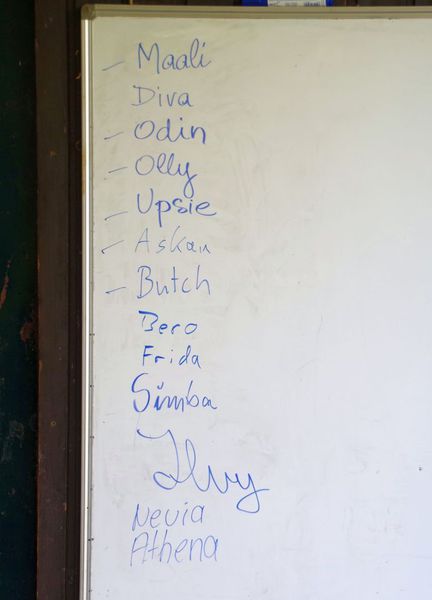 - Maali
Diva
- Odin
- Olly
- Upsie
- Askan
- Butch
Bero
Frida
Simba
Ilvy
Nevia
Athena